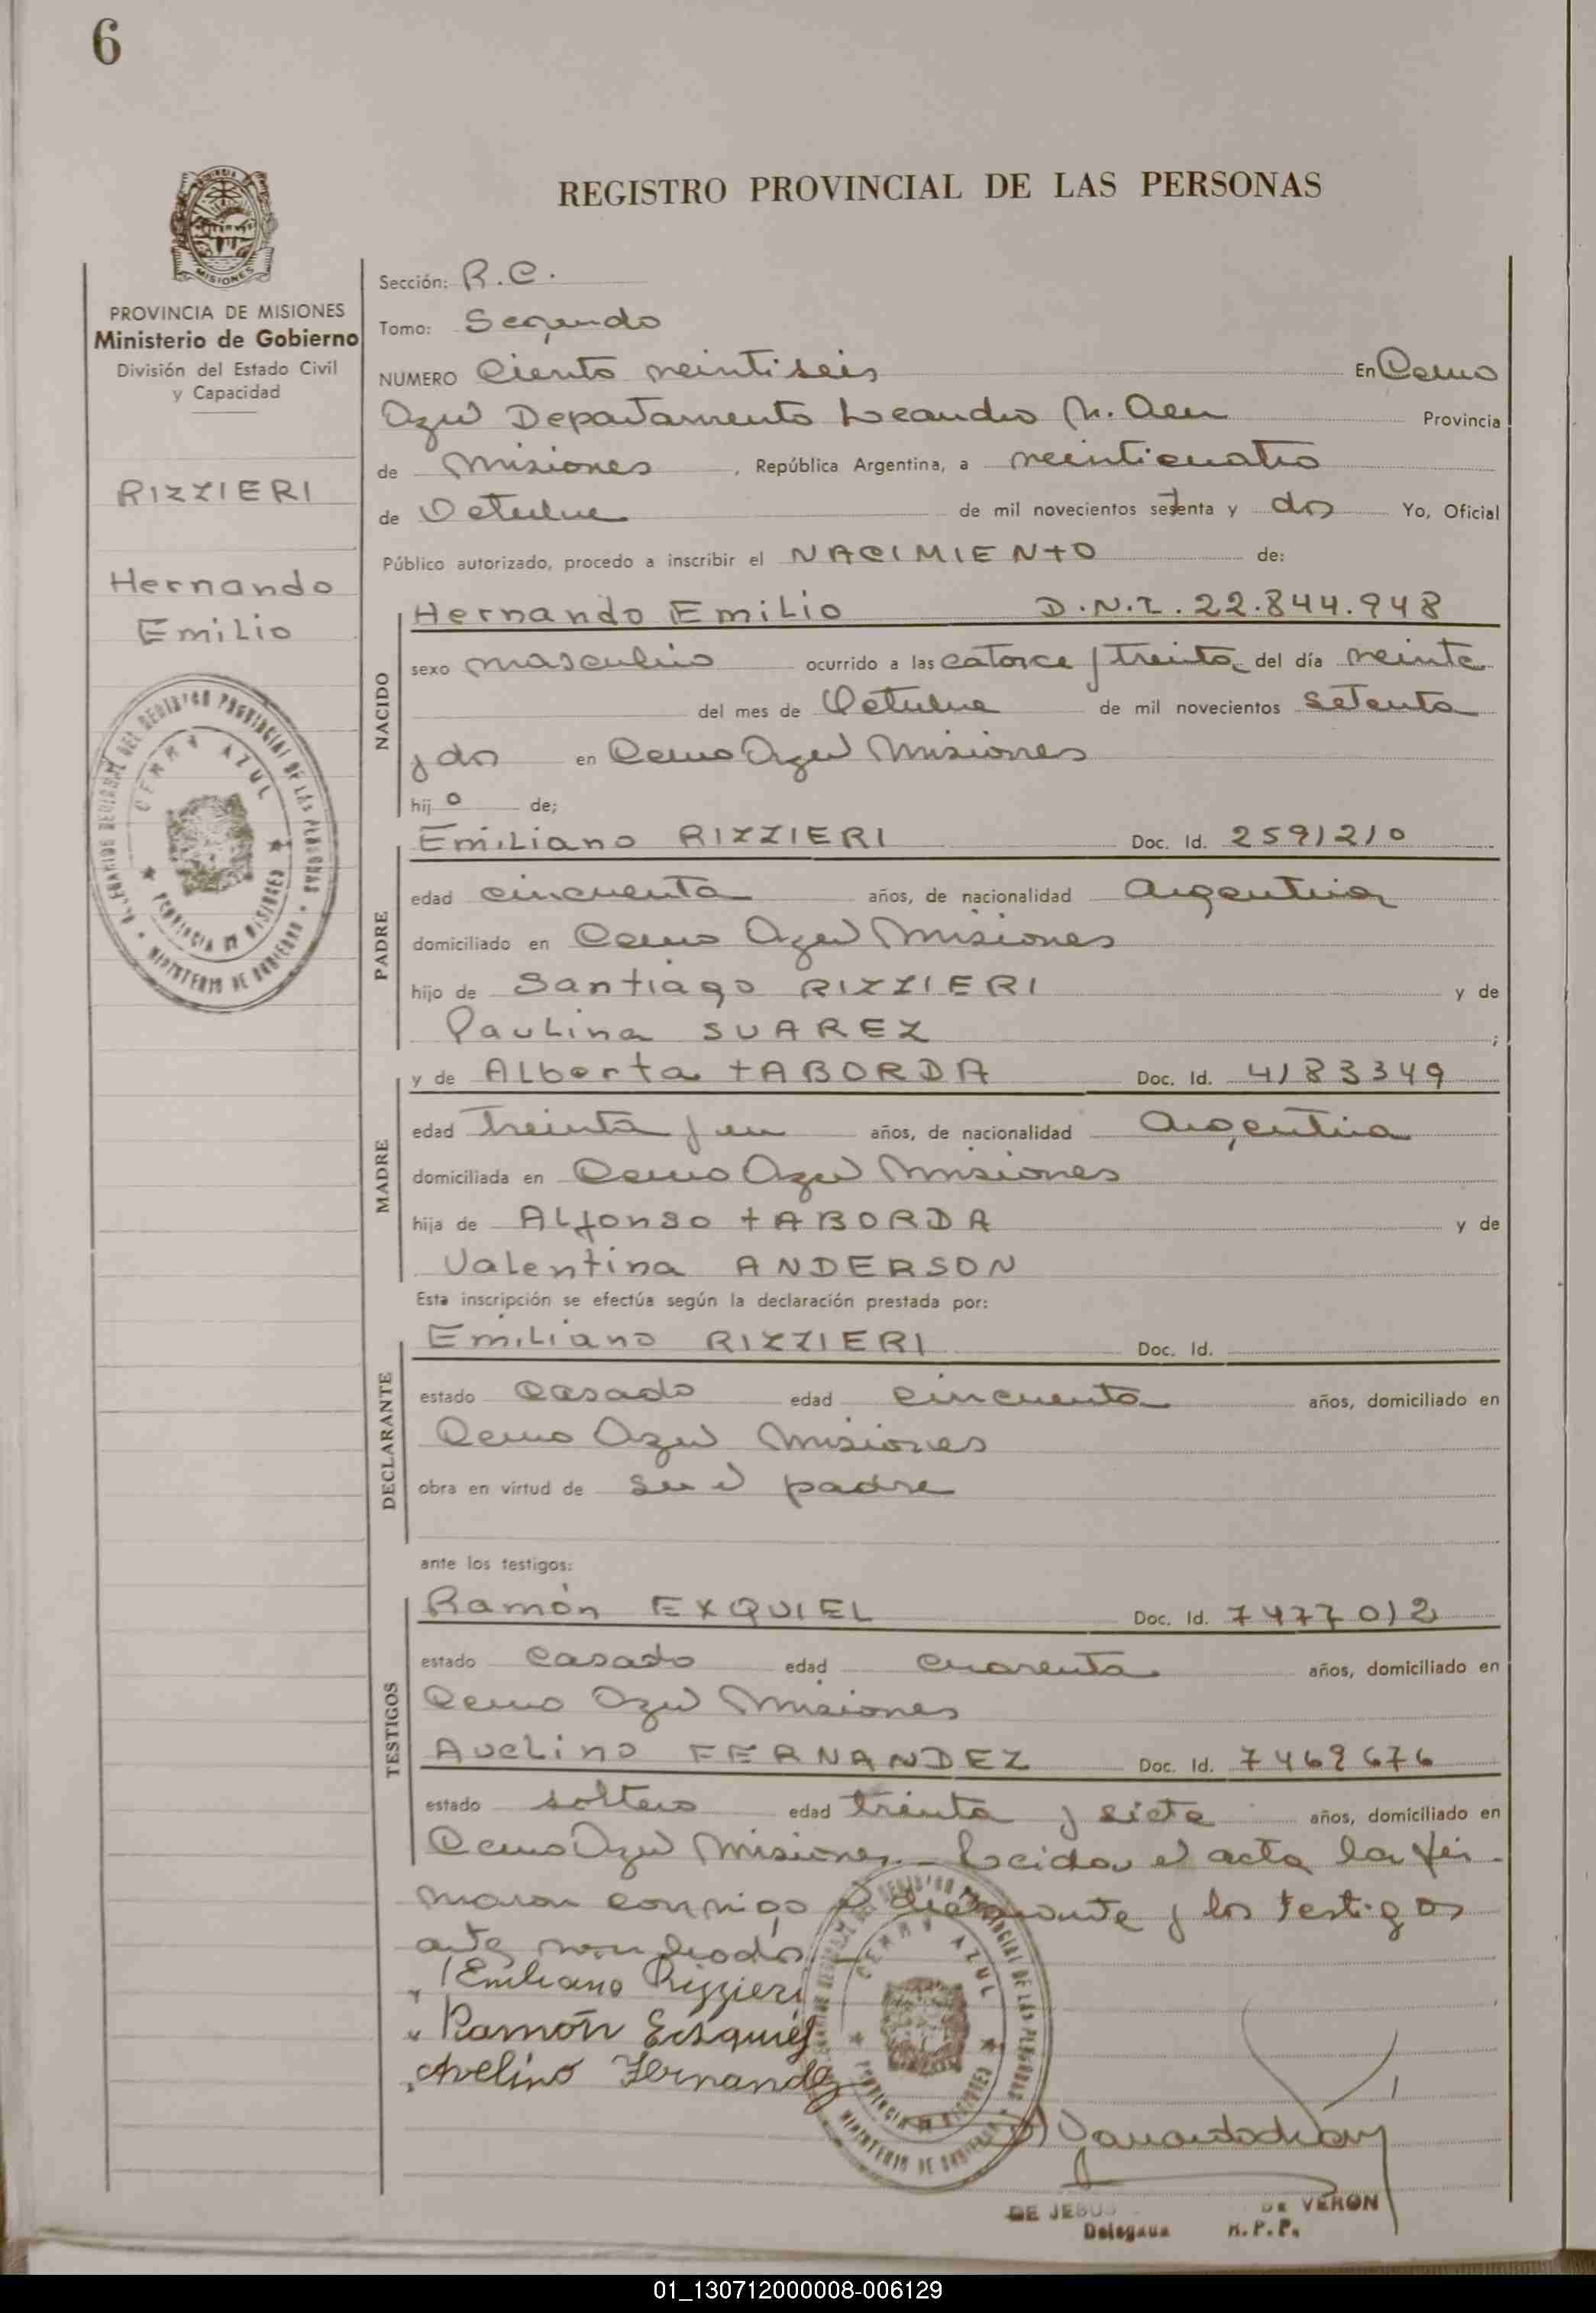 6
REGISTRO PROVINCIAL DE LAS PERSONAS
MISIONES
PROVINCIA DE MISIONES
Ministerio de Gobierno
División del Estado Civil
y Capacidad
RIZZIERI
Hernando
Emilio
Sección: R.C.
Tomo: Segundo
NUMERO Ciento veintiseis En Cerro
Azul Departamento Leandro N. Alem Provincia
de Misiones, República Argentina, a veinticuatro
de Octubre de mil novecientos setenta y dos Yo, Oficial
Público autorizado, procedo a inscribir el NACIMIENTO de:
NACIDO
Hernando Emilio D.N.I. 22.844.948
sexo masculino ocurrido a las catorce y treinta del día veinte
del mes de Octubre de mil novecientos setenta
y dos en Cerro Azul Misiones
hijo de;
PADRE
Emiliano RIZZIERI Doc. Id. 2591210
edad cincuenta años, de nacionalidad argentina
domiciliado en Cerro Azul Misiones
hijo de Santiago RIZZIERI y de
Paulina SUAREZ ;
MADRE
y de Alberta TABORDA Doc. Id. 4183349
edad treinta y un años, de nacionalidad Argentina
domiciliada en Cerro Azul Misiones
hija de Alfonso TABORDA y de
Valentina ANDERSON
Esta inscripción se efectúa según la declaración prestada por:
DECLARANTE
Emiliano RIZZIERI Doc. Id.
estado casado edad cincuenta años, domiciliado en
Cerro Azul Misiones
obra en virtud de ser el padre
ante los testigos:
TESTIGOS
Ramón EXQUIEL Doc. Id. 7477012
estado casado edad cuarenta años, domiciliado en
Cerro Azul Misiones
Avelino FERNANDEZ Doc. Id. 7469676
estado soltero edad treinta y siete años, domiciliado en
Cerro Azul Misiones. Leida el acta la fir-
maron conmigo el declarante y los testigos
ante nombrados
Emiliano Rizzieri
Ramón Ezequiel
Avelino Fernandez
CERRO AZUL
PROVINCIA DE MISIONES
MINISTERIO DE GOBIERNO
DE JESUS DE VERON
Delegada R.P.P.
01_130712000008-006129